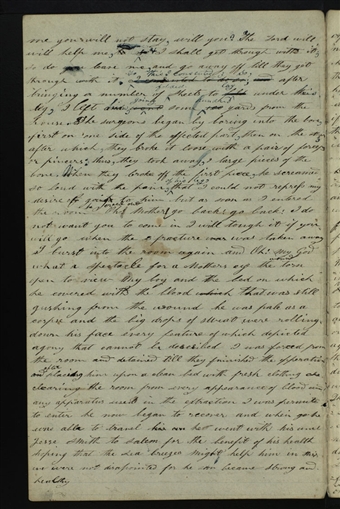 one you will not stay, will you? The Lord will
will help me, & I shall get through with it
so do leave me and go away off till they get
through with it, after
bringing a number of sheets to under this
leg, I left and some yards from the
house The surgeons began by boring into the bone
first on one side of the affected part, then on the other
after which they broke it loose with a pair of forceps
or pincers, thus, they took away 3 large pieces of the
bone. When they broke off the first piece, he screamed
so loud with the pain that I could not repress my
desire to him but as soon as I entered
the room Mother go back, go back, I do
not want you to come in I will tough it if you
will go when the 3 fracture was taken away
I burst into the room again and Oh! my God
what a spectacle for a Mothers eye the torn
open to view My boy and the bed on which
he covered with the blood which that was still
gushing from the wound he was pale as a
corpse and the big drops of sweat were rolling
down his face every feature of which depicted
agony that cannot be described I was forced from
the room and detained till they finished the opperation
and after placing him upon a clean bed with fresh clothing
clearing the room from every appearance of blood and
any apparatus used in the extraction I was permitted
to enter he now began to recover and when he
was able to travel he went with his uncle
Jesse Smith to Salem for the benefit of his health
hoping that the sea breezes might help him in this
we were not disapointed for he became strong and
healthy